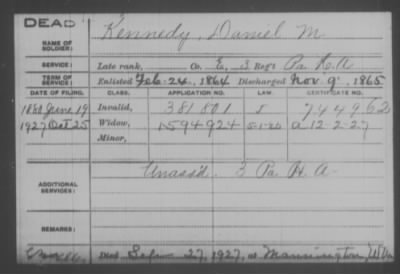 DEAD
NAME OF SOLDIER: Kennedy, Daniel M.
SERVICE: Late rank, Co. E, 3 Reg't Pa H.A
TERM OF SERVICE: Enlisted Feb. 24, 1864 Discharged Nov. 9, 1865
DATE OF FILING. CLASS. APPLICATION NO. LAW. CERTIFICATE NO.
1880 June 19 Invalid, 381801 744962
1927 Oct 25 Widow, 1594924 5-1-20 a 12-2-27
Minor,
ADDITIONAL SERVICES: Unass'd. 3 Pa H. A.
REMARKS:
Died 27, 1927, at Mannington, W Va